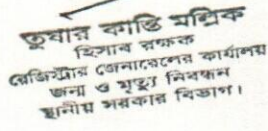 তুষার কান্তি মল্লিক
হিসাব রক্ষক
রেজিস্ট্রার জেনারেলের কার্যালয়
জন্ম ও মৃত্যু নিবন্ধন
স্থানীয় সরকার বিভাগ।